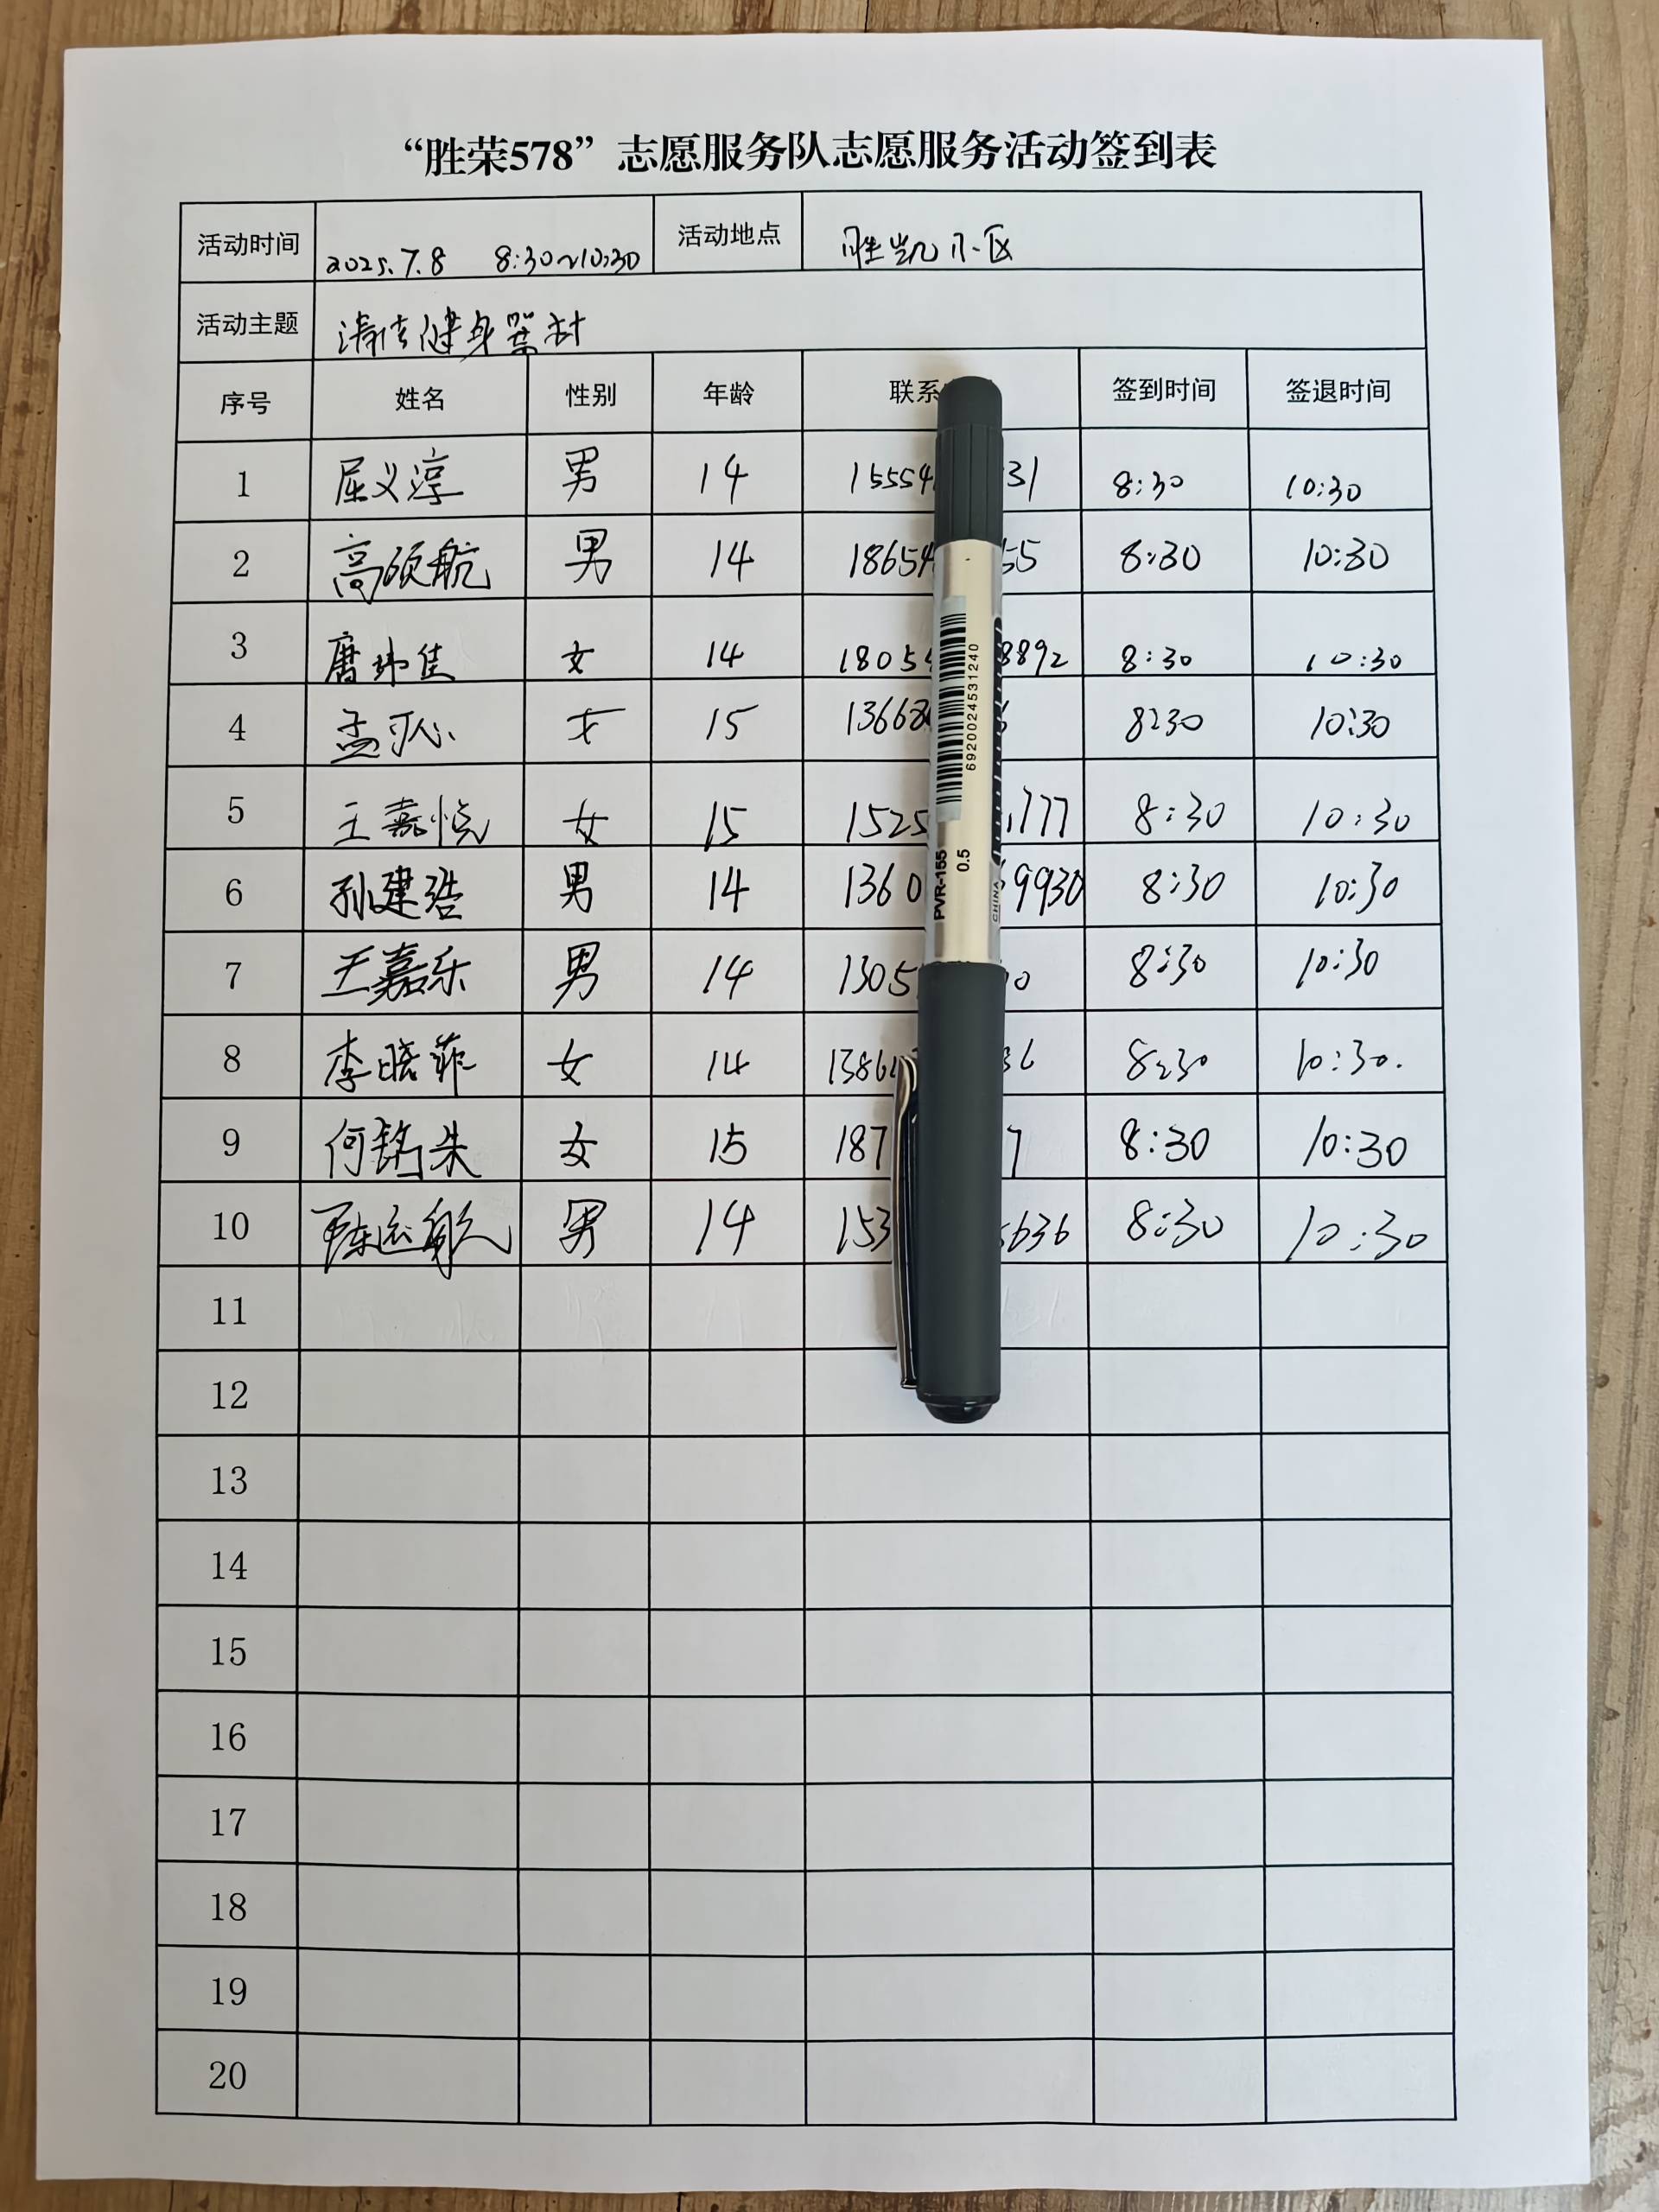 “胜荣578”志愿服务队志愿服务活动签到表
活动时间 2025.7.8 8:30~10:30 活动地点 胜凯小区
活动主题 清洁健身器材
序号 姓名 性别 年龄 联系 签到时间 签退时间
1 屈义淳 男 14 15554 31 8:30 10:30
2 高硕航 男 14 18654 55 8:30 10:30
3 唐玮佳 女 14 1805 8892 8:30 10:30
4 孟可心 女 15 1366 8:30 10:30
5 王嘉悦 女 15 1525 777 8:30 10:30
6 孙建浩 男 14 1360 9930 8:30 10:30
7 王嘉乐 男 14 1305 0 8:30 10:30
8 李晓菲 女 14 1386 36 8:30 10:30.
9 何铭朱 女 15 187 7 8:30 10:30
10 陈运航 男 14 153 5636 8:30 10:30
11
12
13
14
15
16
17
18
19
20
6920024531240
PVR-155 0.5
CHINA